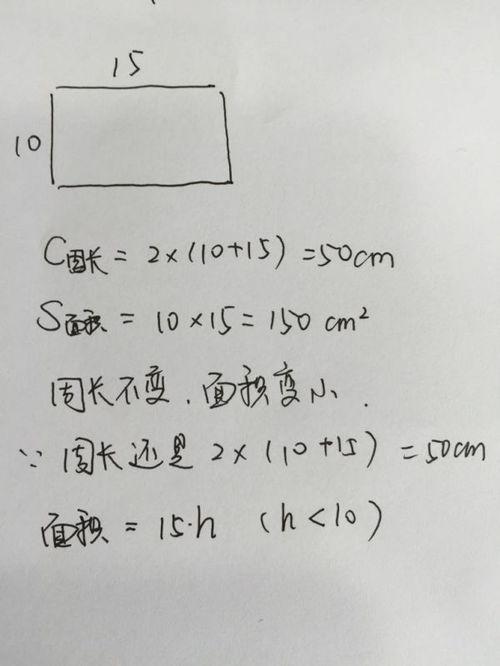 15
10
C周长 = 2×(10+15) = 50cm
S面积 = 10×15 = 150 cm²
周长不变、面积变小.
∵ 周长还是 2×(10+15) = 50cm
面积 = 15·h (h<10)